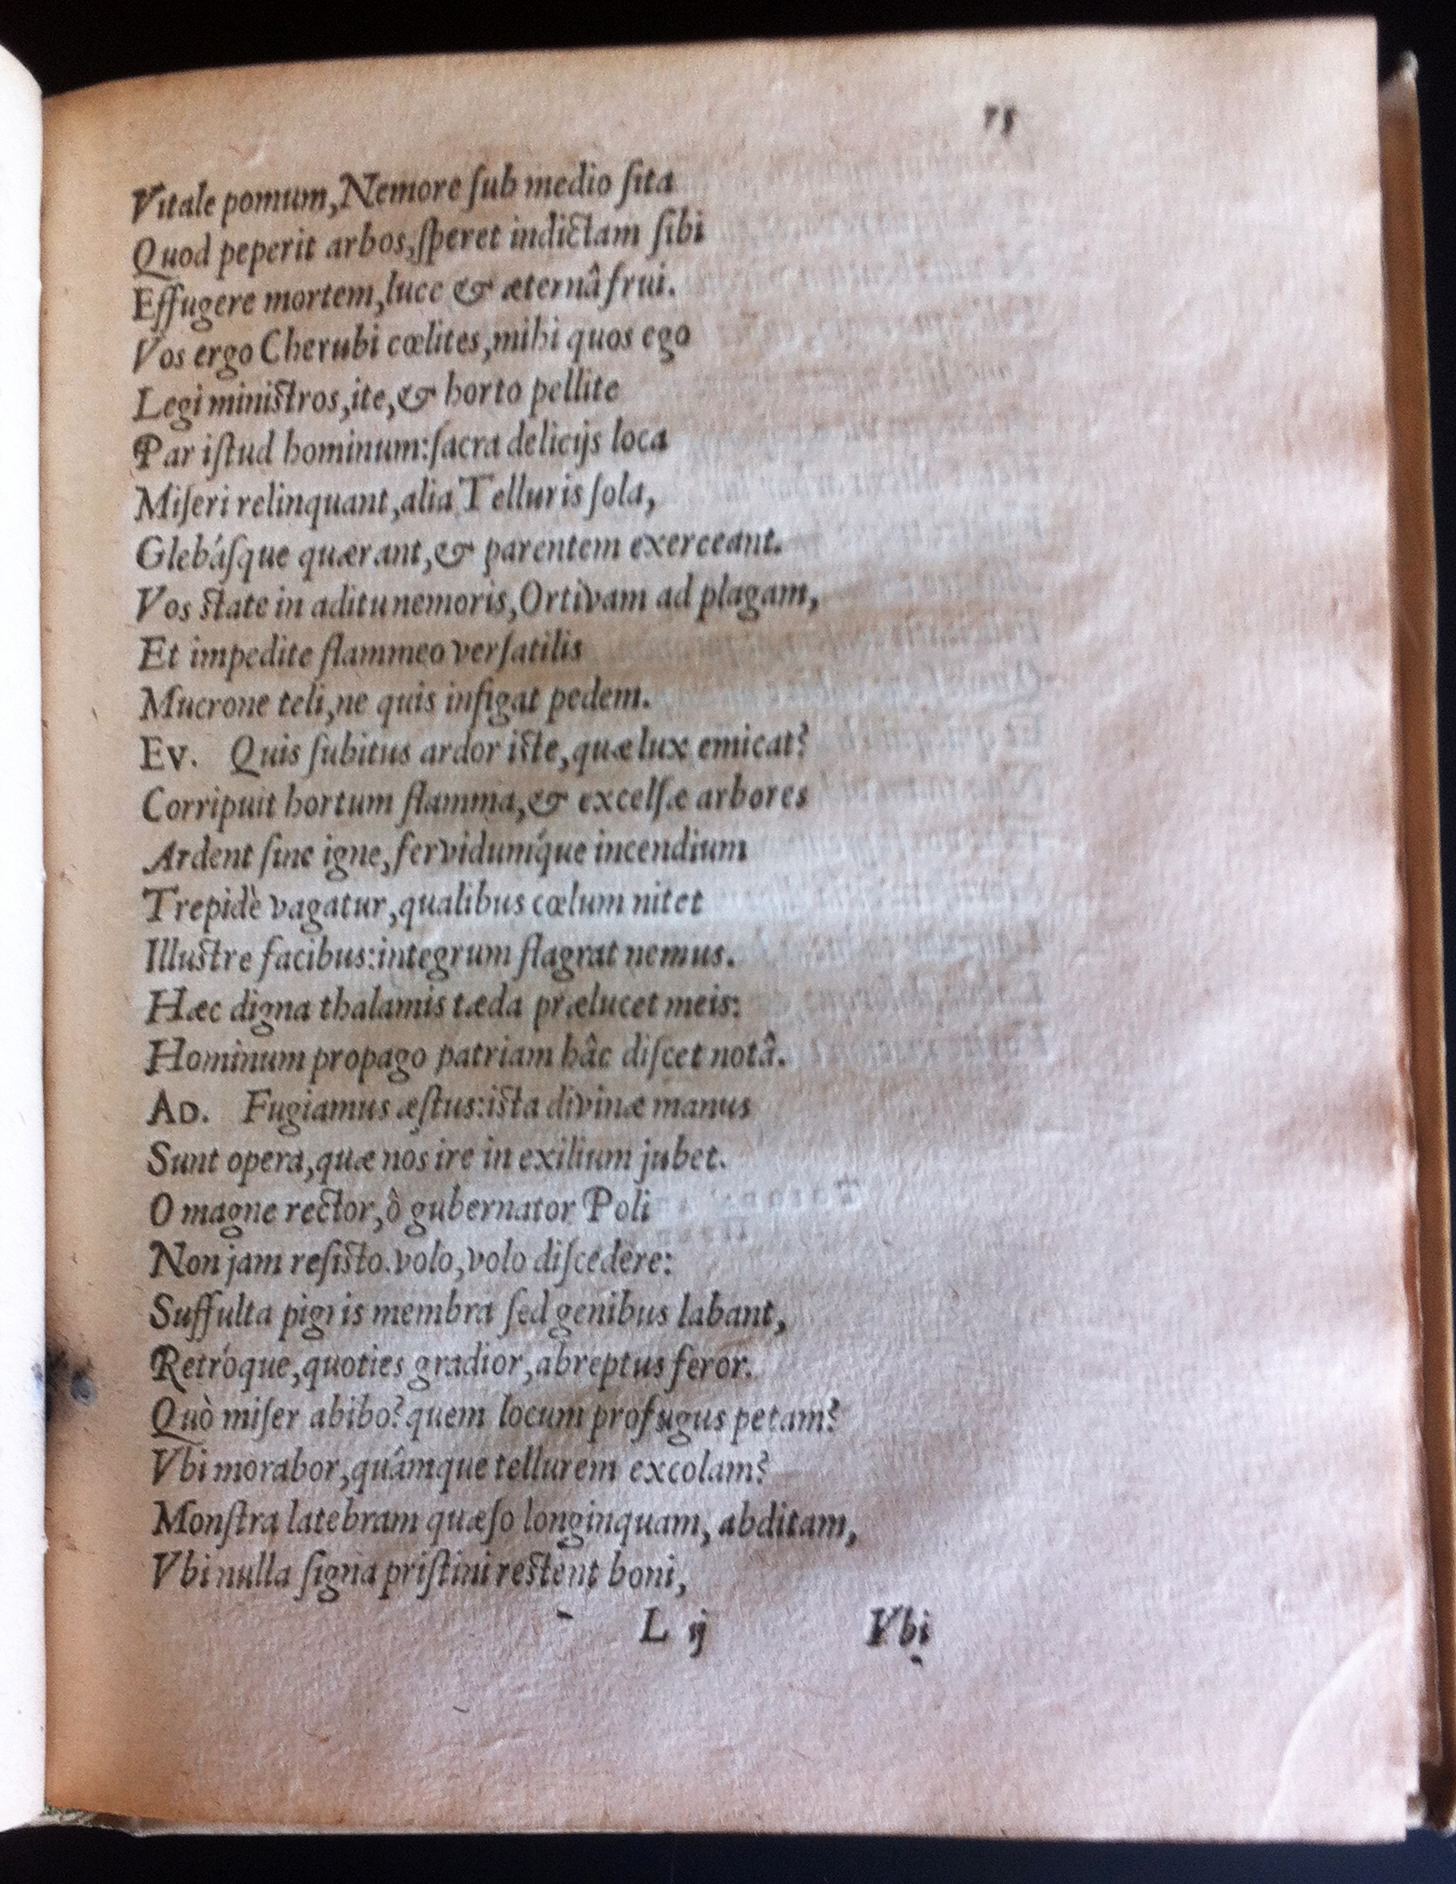 75
Vitale pomum, Nemore ſub medio ſita
Quod peperit arbos, ſperet indictam ſibi
Effugere mortem, luce & æternâ frui.
Vos ergo Cherubi cœlites, mihi quos ego
Legi miniſtros, ite, & horto pellite
Par iſtud hominum: ſacra delicijs loca
Miſeri relinquant, alia Telluris ſola,
Glebáſque quærant, & parentem exerceant.
Vos ſtate in aditu nemoris, Ortivam ad plagam,
Et impedite flammeo verſatilis
Mucrone teli, ne quis infigat pedem.
EV. Quis ſubitus ardor iſte, quæ lux emicat?
Corripuit hortum flamma, & excelſæ arbores
Ardent ſine igne, fervidumq́ue incendium
Trepidè vagatur, qualibus cœlum nitet
Illuſtre facibus: integrum flagrat nemus.
Hæc digna thalamis tæda prælucet meis:
Hominum propago patriam hâc diſcet notâ.
AD. Fugiamus æſtus: iſta divinæ manus
Sunt opera, quæ nos ire in exilium jubet.
O magne rector, ô gubernator Poli
Non jam reſiſto. volo, volo diſcedere:
Suffulta pigris membra ſed genibus labant,
Retróque, quoties gradior, abreptus feror.
Quò miſer abibo? quem locum profugus petam?
Vbi morabor, quâmque tellurem excolam?
Monſtra latebram quæſo longinquam, abditam,
Vbi nulla ſigna priſtini reſtent boni,
L ij Vbi